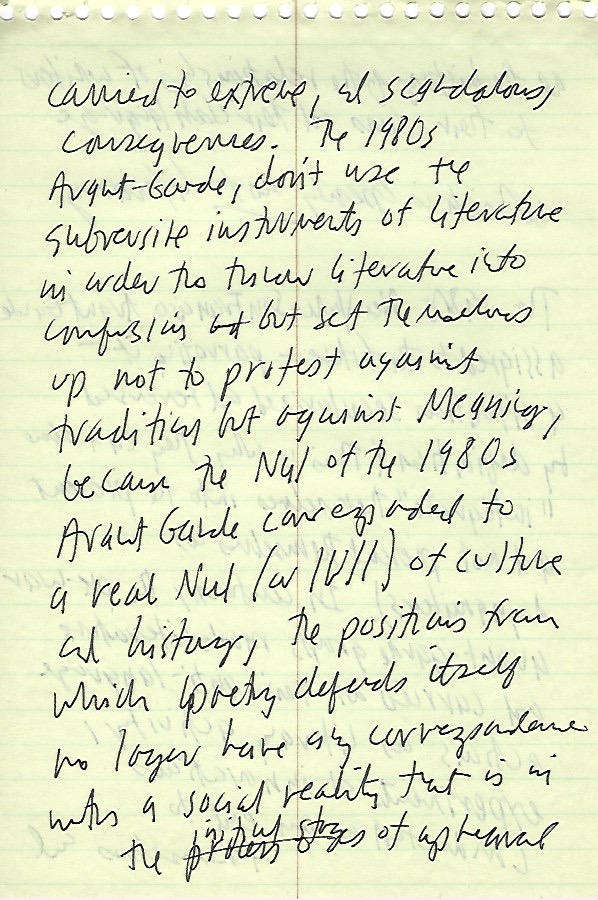 carried to extreme, and scandalous,
consequences. The 1980s
Avant-Garde, don't use the
subversite instruments of literature
in order tho throw literature into
confusion but set themselves
up not to protest against
tradition but against Meaning,
because the Nul of the 1980s
Avant Garde corresponded to
a real Nul (or of culture
and history, the positions from
which poetry defends itself
no longer have any correspondance
with a social reality that is in
the initial stages of upheaval